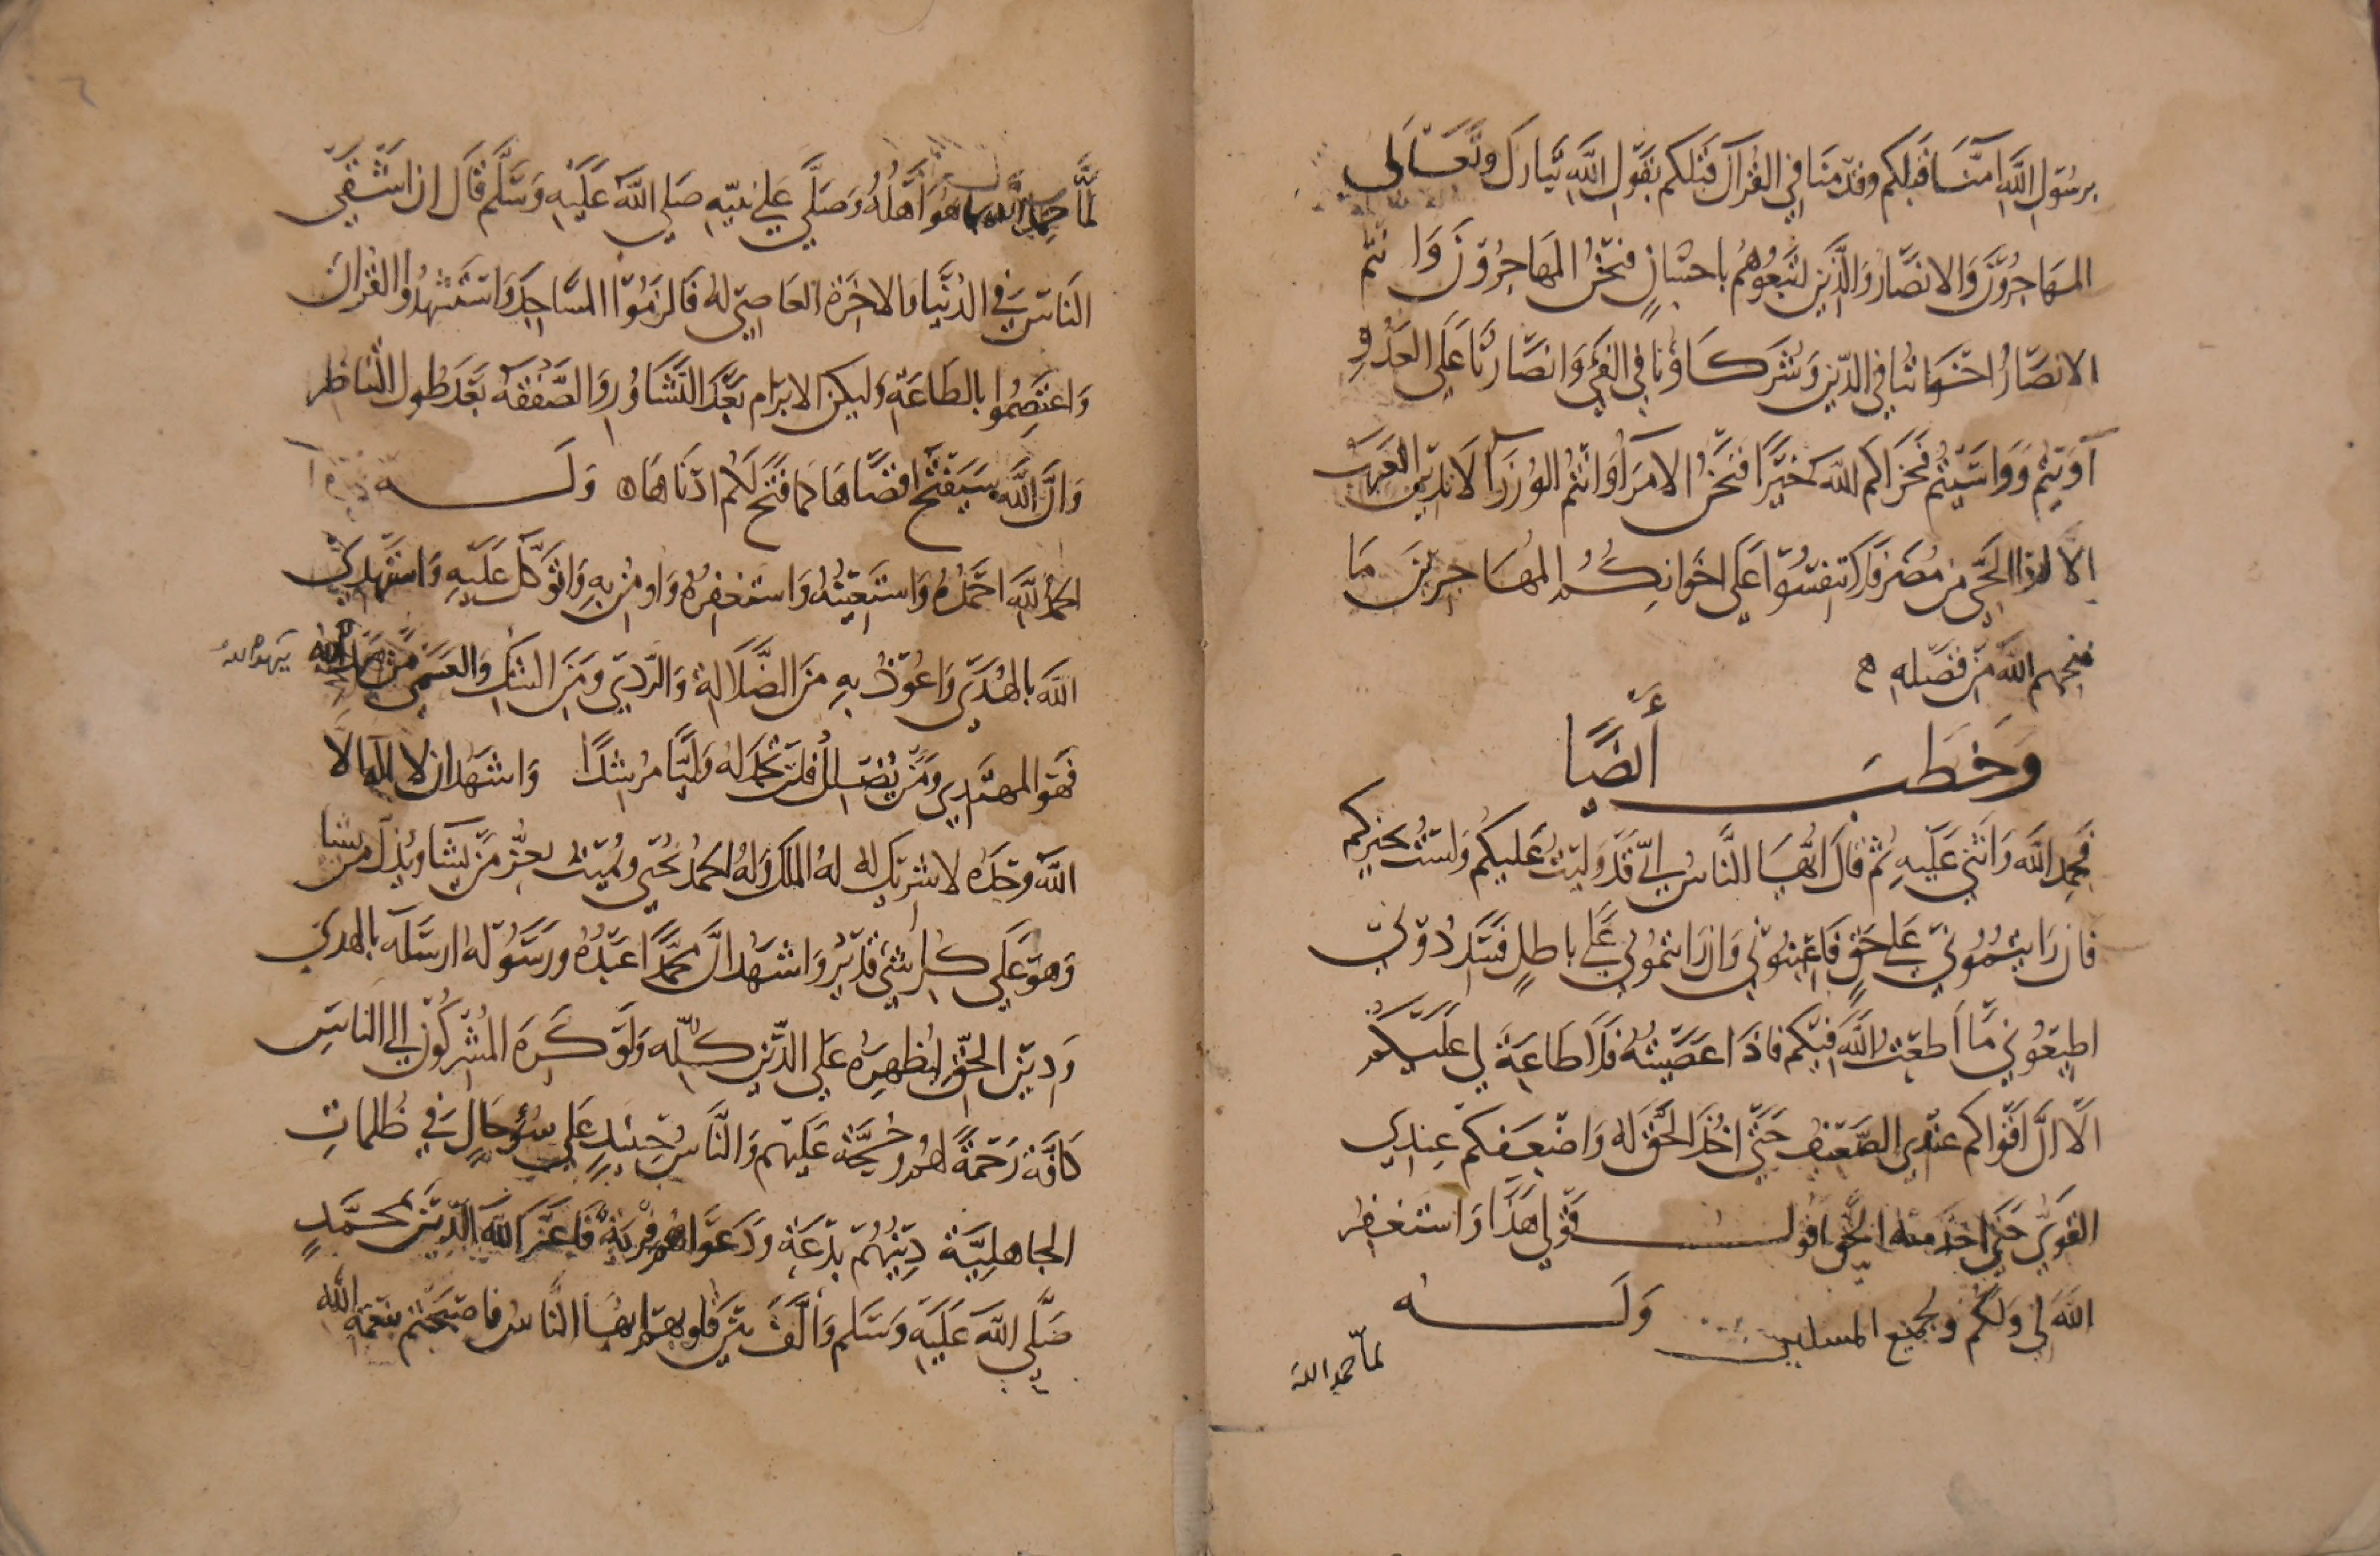 برسول الله امنا قبلكم وقدمنا في القرآن قبلكم بقول الله تبارك وتعالى
المهاجرون والانصار والذين اتبعوهم باحسان فنحن المهاجرون وانتم
الانصار اخواننا في الدين وشركاؤنا في الفيء وانصارنا على العدو
آويتم وواسيتم فجزاكم الله خيرا فنحن الامرا وانتم الوزرآ لا تدين العرب
الا لهذا الحي من قريش فلا تنفسوا على اخوانكم المهاجرين ما
منحهم الله من فضله
وخطب أيضًا
فحمد الله واثنى عليه ثم قال ايها الناس اني قد وليت عليكم ولست بخيركم
فان رايتموني على حق فاعينوني وان رايتموني على باطل فسددوني
اطيعوني ما اطعت الله فيكم فاذا عصيته فلا طاعة لي عليكم
الا ان اقواكم عندي الضعيف حتى اخذ الحق له واضعفكم عندي
القوي حتى اخذ منه الحق اقول قولي هذا واستغفر
الله لي ولكم ولجميع المسلمين وله
لما حمد الله
لما حمد الله بما هو اهله وصلى على نبيه صلى الله عليه وسلم قال ان اشقى
الناس في الدنيا والاخرة العاصي له فالزموا المساجد واستشهدوا القران
واعتصموا بالطاعة وليكن الابرام بعد التشاور والصفقة بعد طول التناظر
وان الله سيفتح اقصاها كما فتح لكم ادناها وله
الحمد لله احمده واستعينه واستغفره واومن به واتوكل عليه واستهدي
الله بالهدى واعوذ به من الضلالة والردى ومن الشك والعمى من يهد الله
يهده الله
فهو المهتدي ومن يضلل فلن تجد له وليا مرشدا واشهد ان لا اله الا
الله وحده لا شريك له له الملك وله الحمد يحيي ويميت يعز من يشا ويذل من يشا
وهو على كل شيء قدير واشهد ان محمدا عبده ورسوله ارسله بالهدى
ودين الحق ليظهره على الدين كله ولو كره المشركون الى الناس
كافة رحمة لهم وحجة عليهم والناس حينئذ على سوء حال في ظلمات
الجاهلية دينهم بدعة ودعواهم فرية فاعز الله الدين بمحمد
صلى الله عليه وسلم والف بين قلوبهم ايها الناس فاصبحتم بنعمة الله